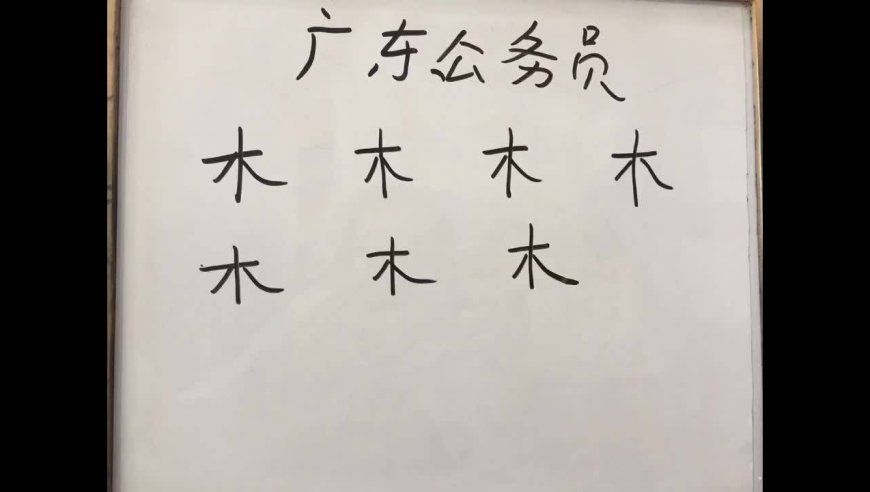 广东公务员
木 木 木 木
木 木 木